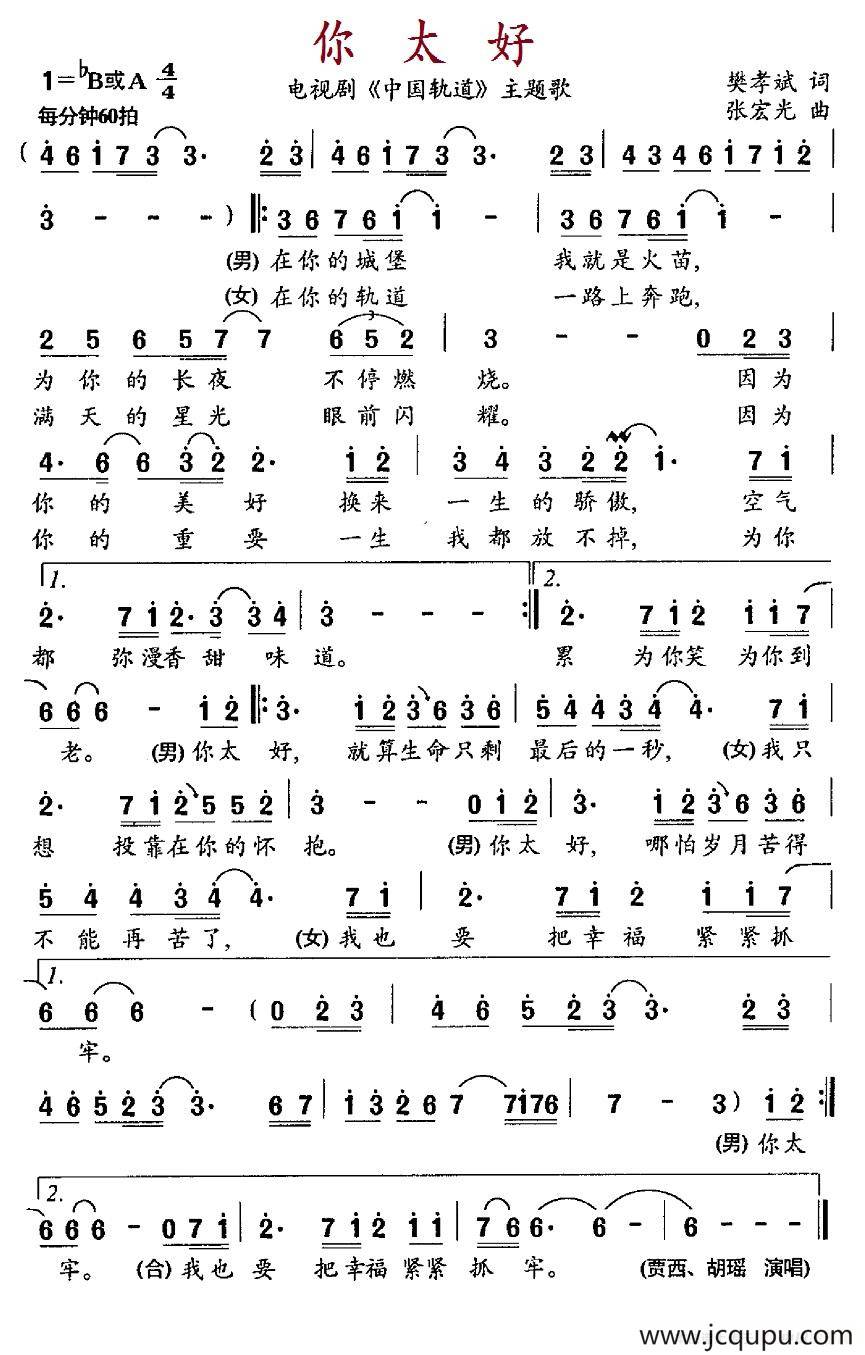 你太好
1=♭B或A 4/4
电视剧《中国轨道》主题歌
樊孝斌 词
每分钟60拍
张宏光 曲
( 4 6 1 7 3 3. 2 3 | 4 6 1 7 3 3. 2 3 | 4 3 4 6 1 7 1 2 |
3 - - - ) ‖: 3 6 7 6 1 1 - | 3 6 7 6 1 1 - |
(男) 在你的城堡 我就是火苗,
(女) 在你的轨道 一路上奔跑,
2 5 6 5 7 7 6 5 2 | 3 - - 0 2 3 |
3
为你的长夜 不停燃烧。 因为
满天的星光 眼前闪耀。 因为
4. 6 6 3 2 2. 1 2 | 3 4 3 2 2 1. 7 1 |
你的美好 换来一生的骄傲, 空气
你的重要 一生我都放不掉, 为你
1. 2.
2. 7 1 2. 3 3 4 | 3 - - - :‖ 2. 7 1 2 1 1 7 |
都 弥漫香甜味道。 累 为你笑为你到
6 6 6 - 1 2 ‖: 3. 1 2 3 6 3 6 | 5 4 4 3 4 4. 7 1 |
老。 (男)你太好, 就算生命只剩最后的一秒, (女)我只
2. 7 1 2 5 5 2 | 3 - - 0 1 2 | 3. 1 2 3 6 3 6 |
想 投靠在你的怀抱。 (男)你太好, 哪怕岁月苦得
5 4 4 3 4 4. 7 1 | 2. 7 1 2 1 1 7 |
不能再苦了, (女)我也要 把幸福紧紧抓
1.
6 6 6 - ( 0 2 3 | 4 6 5 2 3 3. 2 3 |
牢。
4 6 5 2 3 3. 6 7 | 1 3 2 6 7 7 1 7 6 | 7 - 3 ) 1 2 :‖
(男)你太
2.
6 6 6 - 0 7 1 | 2. 7 1 2 1 1 | 7 6 6. 6 - | 6 - - - ‖
牢。 (合)我也要 把幸福紧紧抓牢。 (贾西、胡瑶 演唱)
www.jcqupu.com